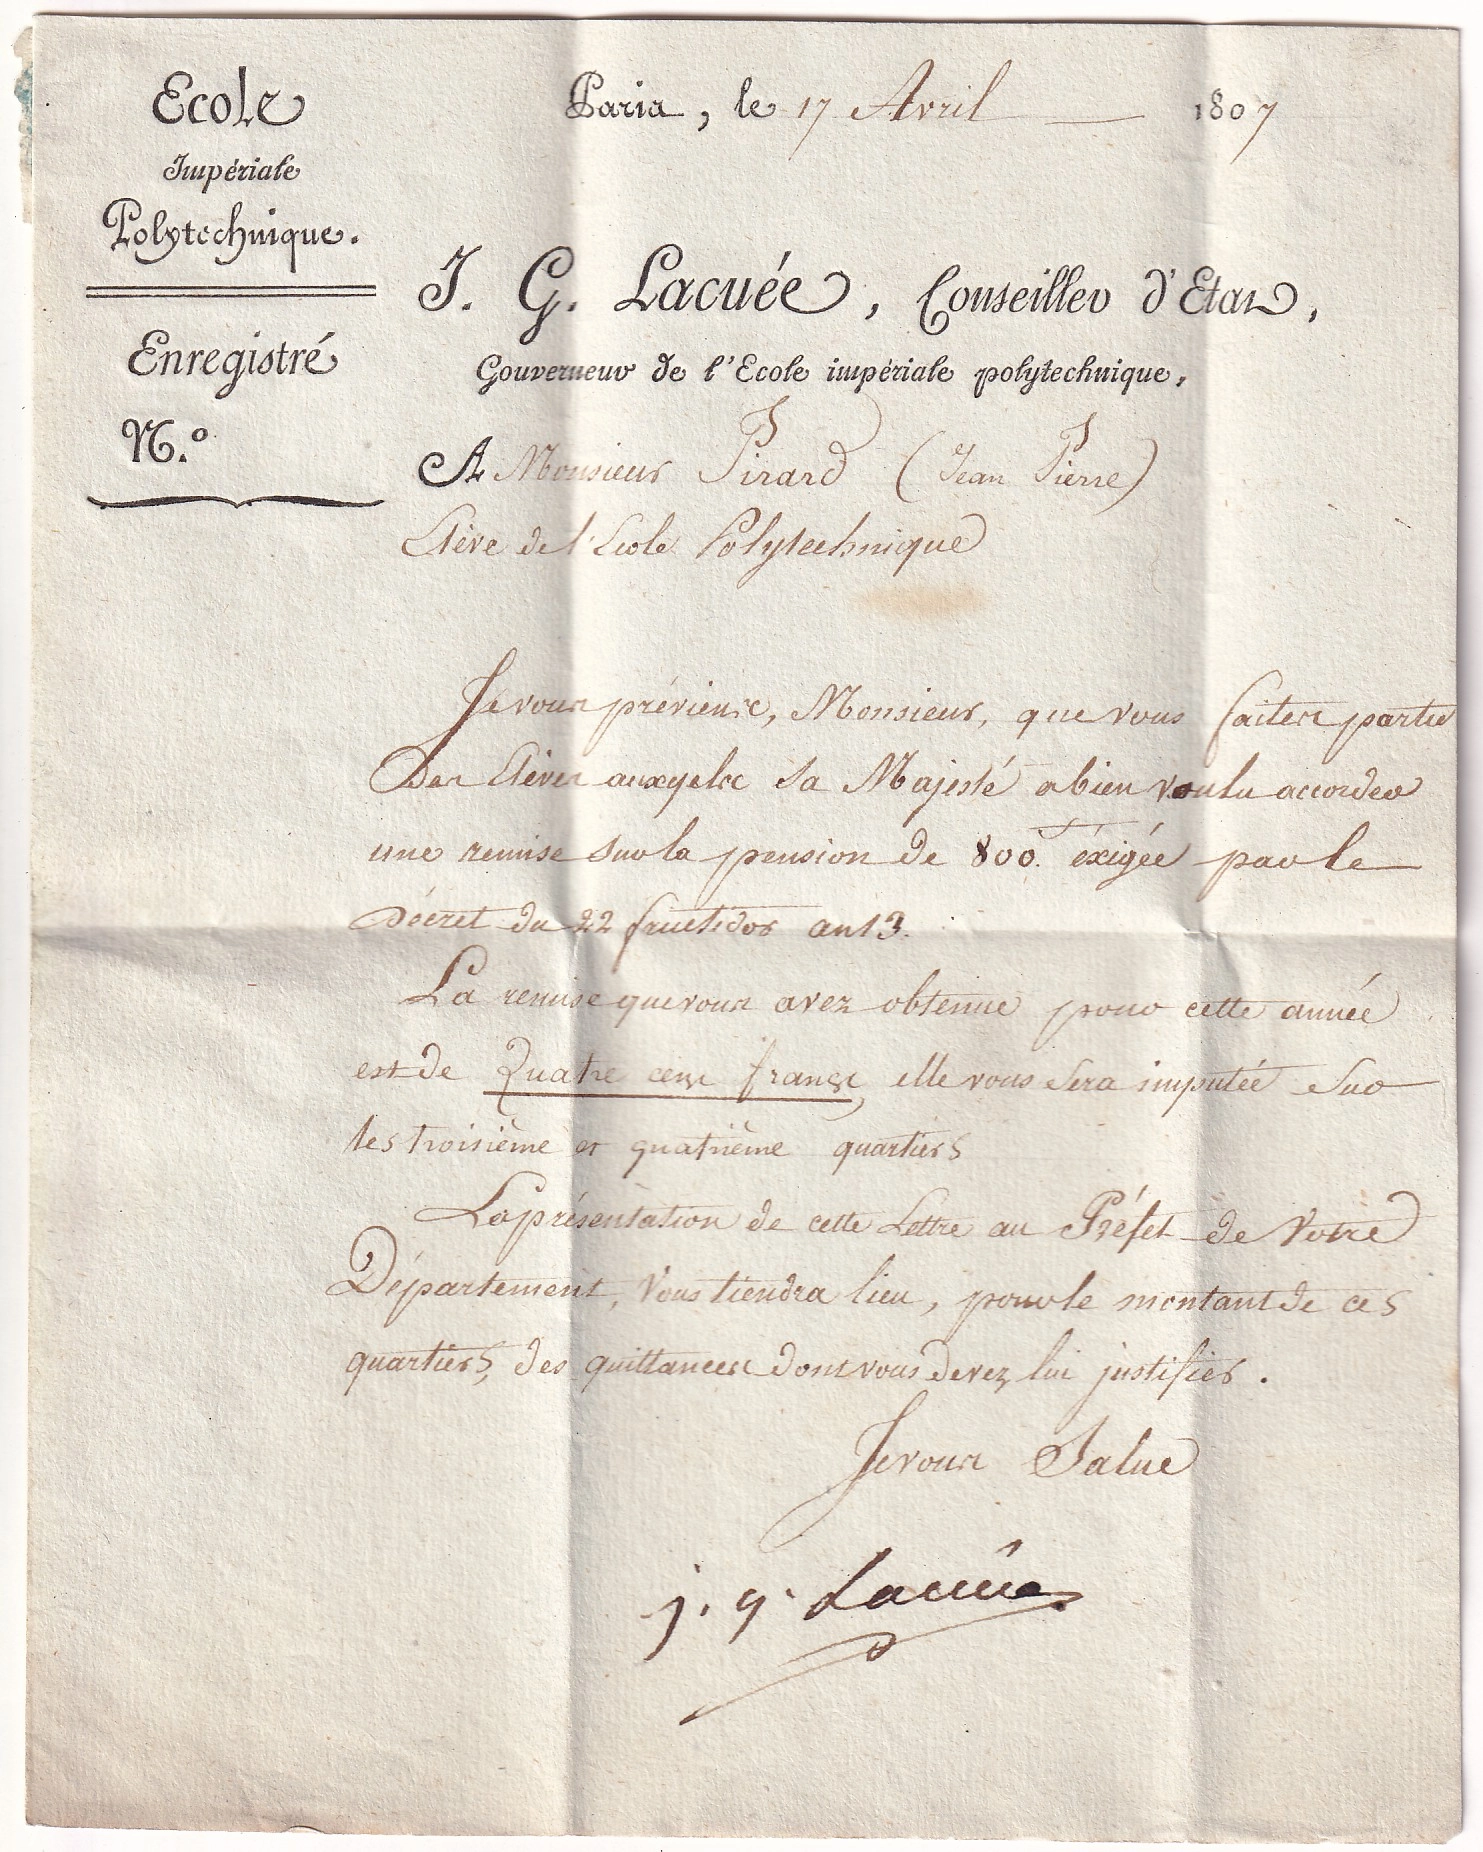 Ecole
Impériale
Polytechnique.
Enregistré
N.º
Paris, le 17 Avril — 1807
J. G. Lacuée, Conseiller d'Etat,
Gouverneur de l'Ecole impériale polytechnique,
A Monsieur Pirard (Jean Pierre)
Elève de l'Ecole Polytechnique
Je vous préviens, Monsieur, que vous faites partie
Des Elèves auxquels sa Majesté a bien voulu accorder
une remise sur la pension de 800.f éxigée par le
Décret du 22 fructidor an 13.
La remise que vous avez obtenue pour cette année
est de Quatre cens francs, elle vous sera imputée sur
les troisième et quatrième quartiers
La présentation de cette Lettre au Préfet de Votre
Département, Vous tiendra lieu, pour le montant de ces
quartiers, des quittances dont vous devez lui justifier.
Je vous Salue
j. g. Lacuée